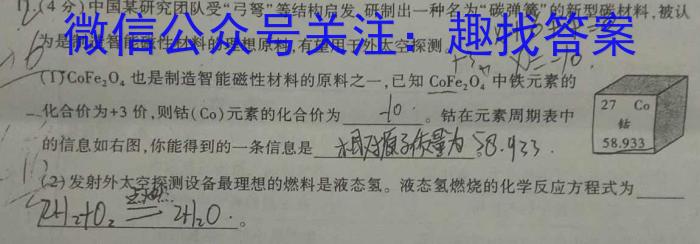 17.(4分)中国某研究团队受“弓弩”等结构启发,研制出一种名为“碳弹簧”的新型碳材料,被认
为是制造智能磁性材料的理想原料,有望用于外太空探测
微信公众号关注:趣找答案
(1)CoFe₂O₄也是制造智能磁性材料的原料之一,已知CoFe₂O₄中铁元素的
化合价为+3价,则钴(Co)元素的化合价为 -10 。钴在元素周期表中
的信息如右图,你能得到的一条信息是 相对原子质量为58.933 。
27 Co
钴
58.933
(2)发射外太空探测设备最理想的燃料是液态氢。液态氢燃烧的化学反应方程式为
2H₂+O₂ 点燃 2H₂O 。